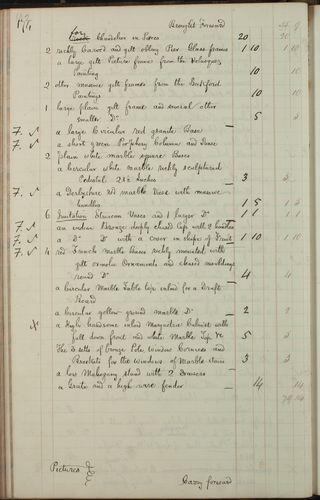 174
Brought Forward 54 9
for Chandelier in Pieces 20 20
2 richly Carved and gilt oblong Pier Glass frames 1 10 1 10
a large gilt Picture frame from the
Painting 10 10
2 other immense gilt frames from the
Paintings 10 10
1 large plain gilt frame and several other
smaller Do 5 5
F. a large Circular red granite Base
F. a short green Porphyry Column and Base
2 plain white marble square Bases
a circular white marble richly sculptured
Pedestal 28 inches 3 3
F. a Derbyshire red marble Vase with massive
handles 1 5 1 5
6 Imitation Etruscan Vases and 1 larger Do 1 1 1 1
F. an Indian Bronze deeply chased Cup with 2 handles
F. a Do Do with a cover in shape of Fruit 1 10 1 10
F. 4 red French marble Vases richly mounted with
gilt ormolu Ornaments and chased mouldings
round Do 4 4
a circular Marble Table top inlaid for a Draft
Board
a circular yellow ground marble Do 2 2
a high handsome inlaid Marquetrie Cabinet with
fall down front and white Marble Top &c 5 5
The 3 setts of bronze Pole Window Cornices and
Brackets for the windows of Marble Stairs 3 3
a low Mahogany stand with 2 Drawers
a Grate and a high wire fender 14 14
79 14
Pictures
Carry forward